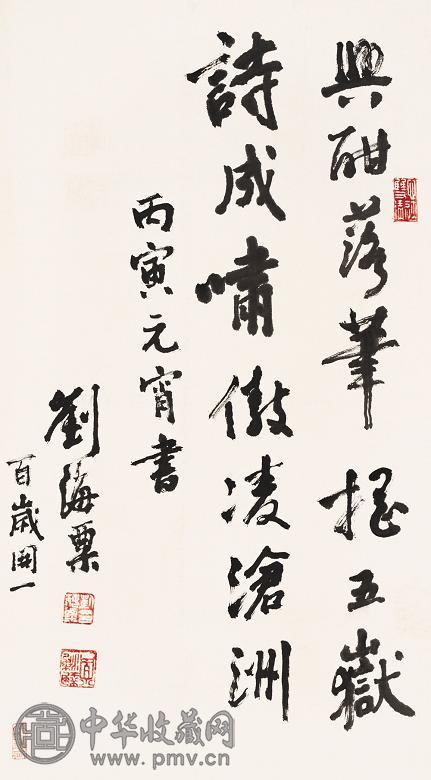 興酣落筆搖五嶽
詩成嘯傲凌滄洲
丙寅元宵書
劉海粟
百歲開一
中华收藏网
www.pmv.cn